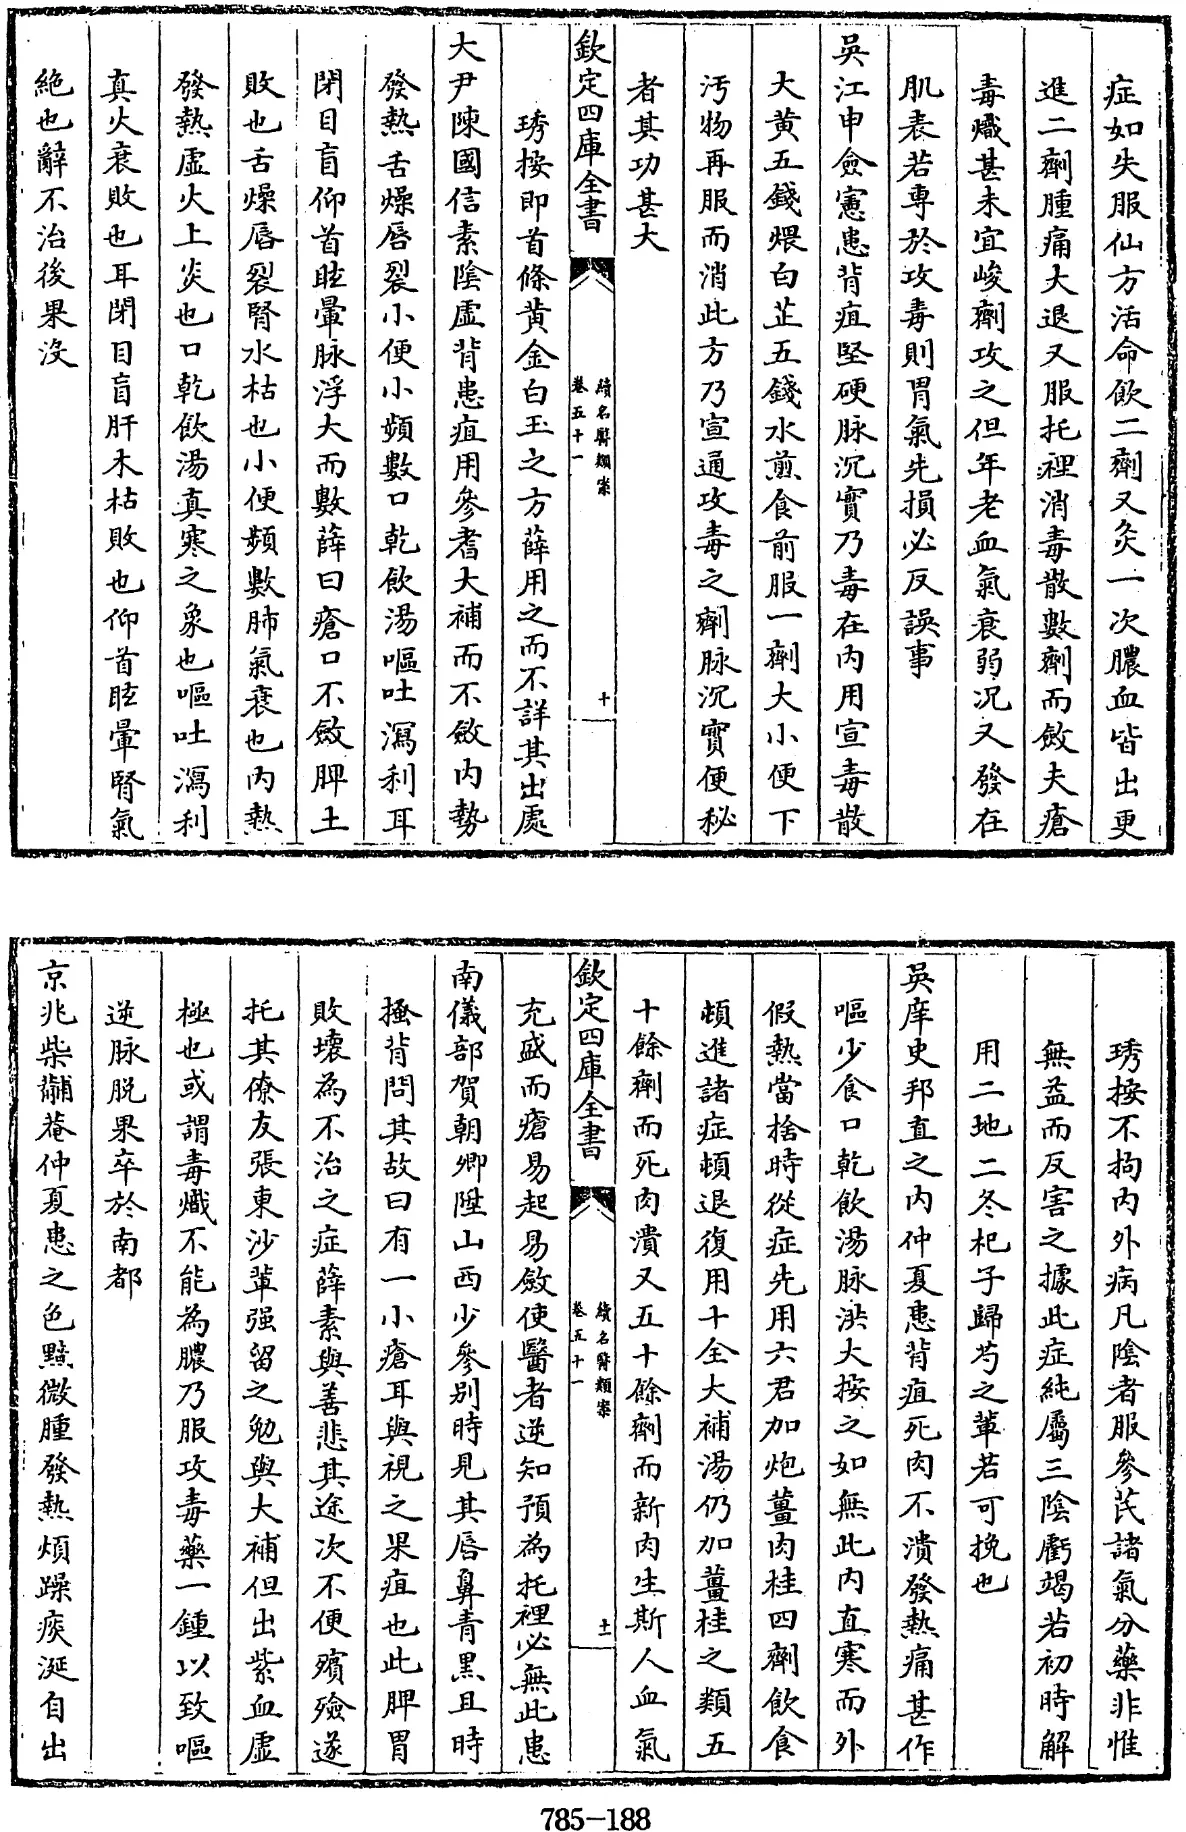 症如失服仙方活命飲二劑又灸一次膿血皆出更
進二劑腫痛大退又服托裡消毒散數劑而斂夫瘡
毒熾甚未宜峻劑攻之但年老血氣衰弱況又發在
肌表若專於攻毒則胃氣先損必反誤事
吳江申僉憲患背疽堅硬脉沉實乃毒在內用宣毒散
大黄五錢煨白芷五錢水煎食前服一劑大小便下
汚物再服而消此方乃宣通攻毒之劑脉沉實便秘
者其功甚大
欽定四庫全書
續名醫類案
卷五十一
十
琇按即首條黄金白玉之方薛用之而不詳其出處
大尹陳國信素陰虛背患疽用參耆大補而不斂內勢
發熱舌燥唇裂小便小頻數口乾飲湯嘔吐瀉利耳
閉目盲仰首眩暈脉浮大而數薛曰瘡口不斂脾土
敗也舌燥唇裂腎水枯也小便頻數肺氣衰也內熱
發熱虛火上炎也口乾飲湯真寒之象也嘔吐瀉利
真火衰敗也耳閉目盲肝木枯敗也仰首眩暈腎氣
絶也辭不治後果沒
琇按不拘內外病凡陰者服參芪諸氣分藥非惟
無益而反害之據此症純屬三陰虧竭若初時解
用二地二冬杞子歸芍之輩若可挽也
吳庠史邦直之內仲夏患背疽死肉不潰發熱痛甚作
嘔少食口乾飲湯脉洪大按之如無此內直寒而外
假熱當捨時從症先用六君加炮薑肉桂四劑飲食
頓進諸症頓退復用十全大補湯仍加薑桂之類五
十餘劑而死肉潰又五十餘劑而新肉生斯人血氣
欽定四庫全書
續名醫類案
卷五十一
十一
充盛而瘡易起易斂使醫者逆知預為托裡必無此患
南儀部賀朝卿陞山西少參別時見其唇鼻青黑且時
搔背問其故曰有一小瘡耳與視之果疽也此脾胃
敗壞為不治之症薛素與善悲其途次不便殯殮遂
托其僚友張東沙輩强留之勉與大補但出紫血虛
極也或謂毒熾不能為膿乃服攻毒藥一鍾以致嘔
逆脉脱果卒於南都
京兆柴黼菴仲夏患之色黯微腫發熱煩躁痰涎自出
785-188